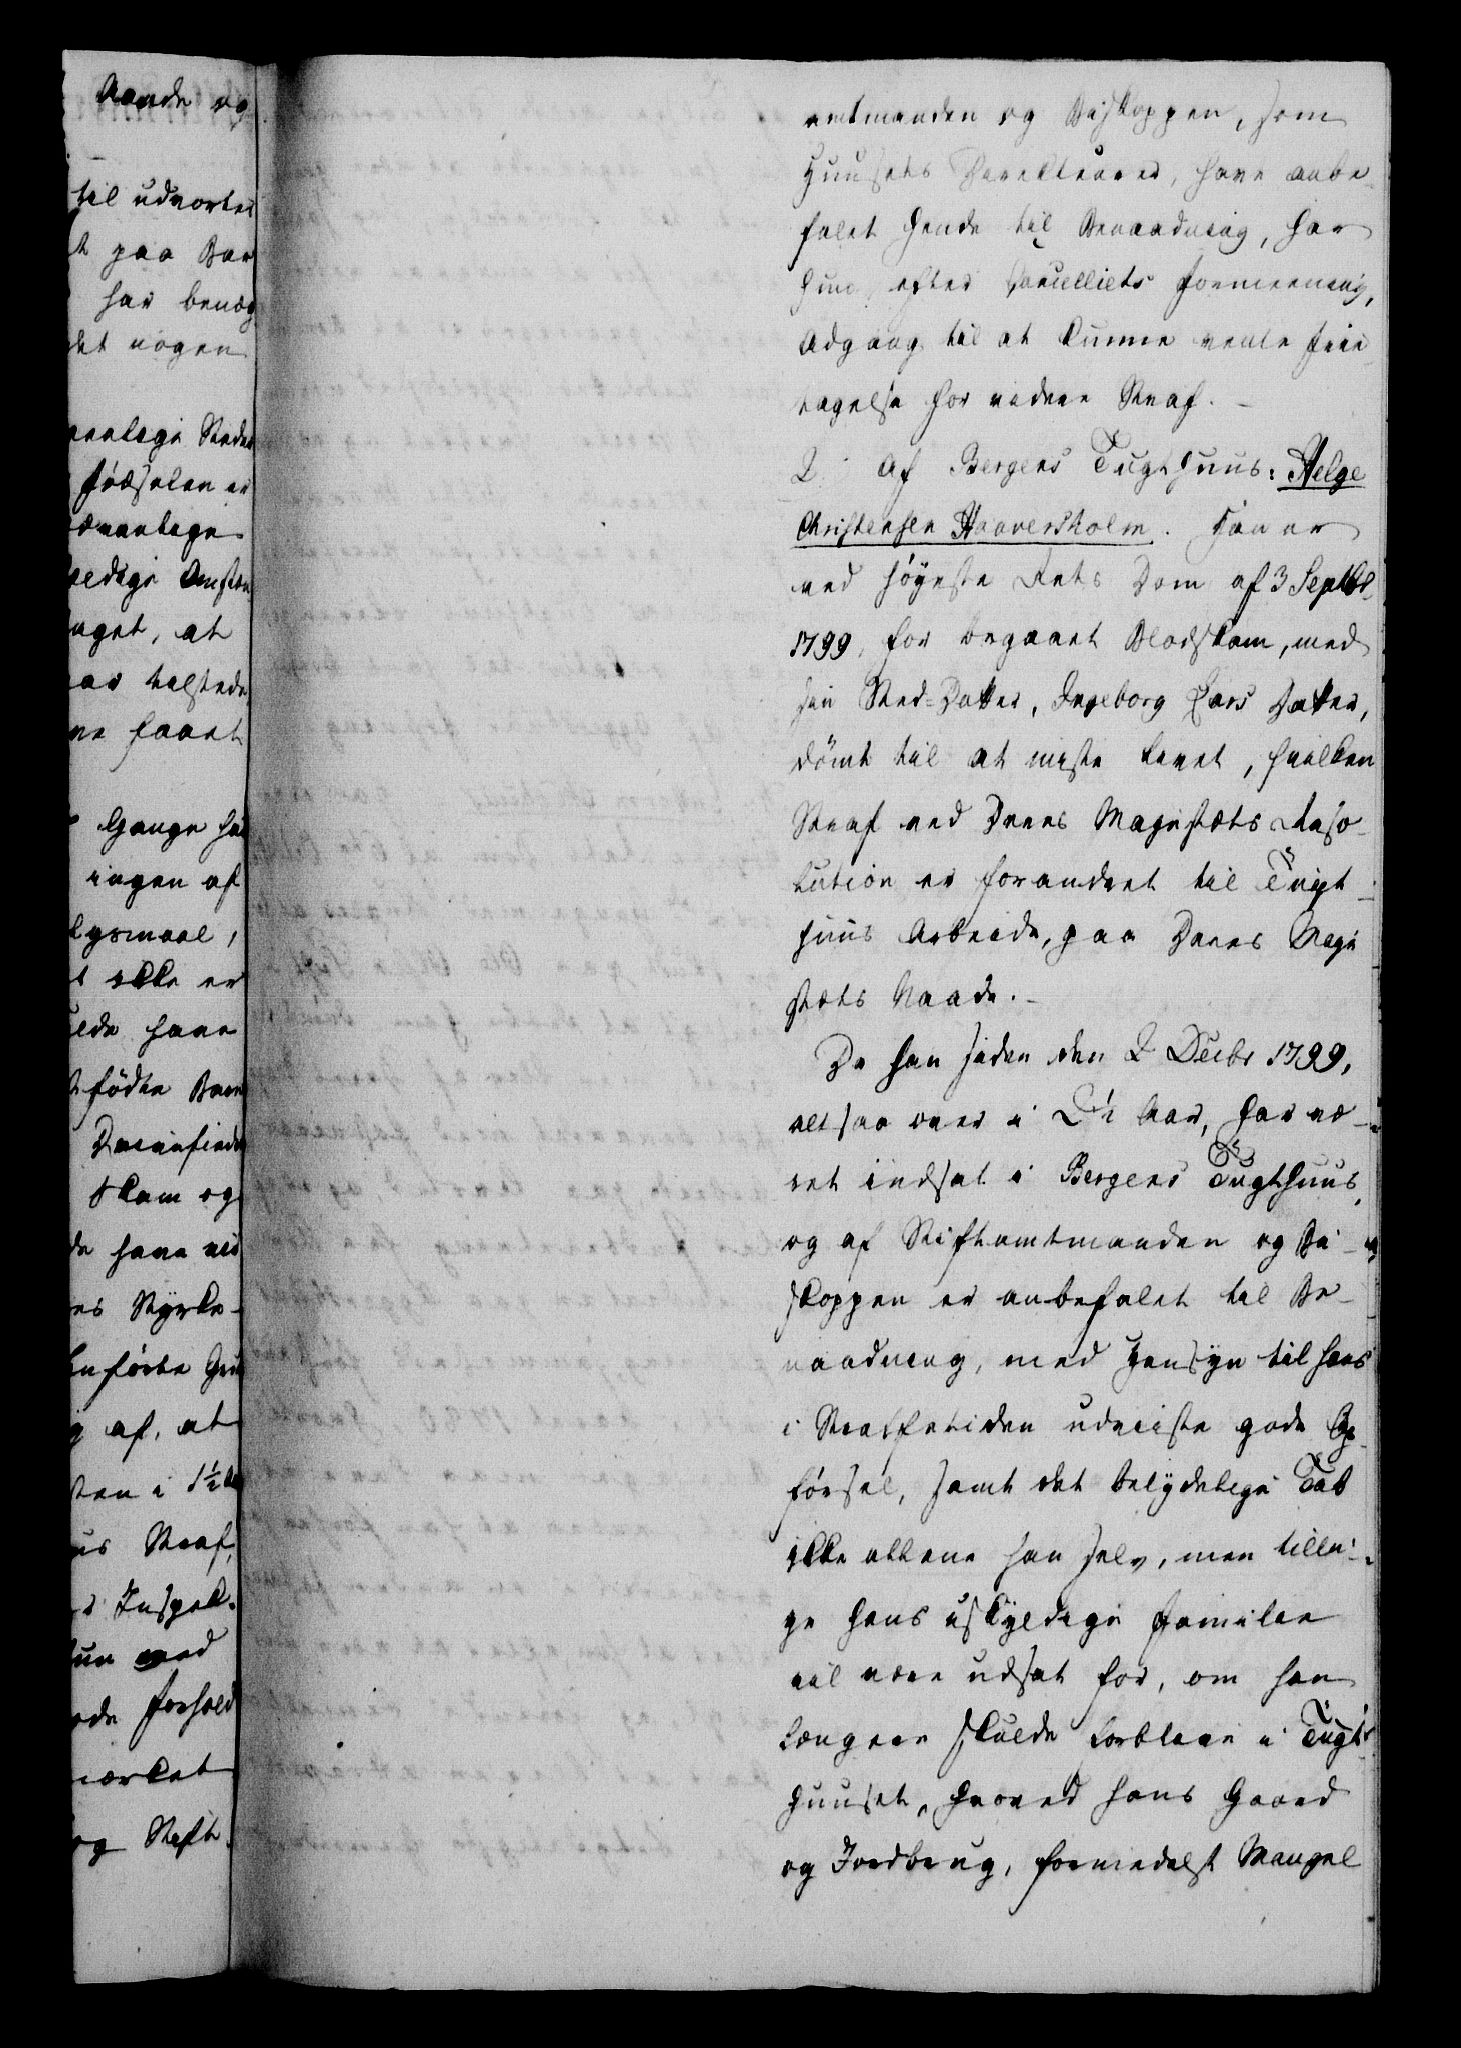 Aande og
til udvortes
t paa Bar
har benæg
det nogen
Födselen er
aget, at
var tilstede
ve faaet
Gange ha
ingen af
t ikke er
ulde have
födte Barn
Skam og
de have
es Styrke
anförte Gru
g af, at
sten i 1½ A
us Straf,
s Inspek-
un med
ode Forhold
mærket
og Stift-
amtmanden og Biskoppen, som
Huusets Directeurer, have anbe-
falet hende til Benaadning, har
hun efter Cancelliets Formeening,
Adgang til at kunne vente Frie-
tagelse for videre Straf. -
2. Af Bergens Tugthuus: Helge
Christensen Haaversholm. Han er
ved Höyeste Rets Dom af 3 Septbr.
1799, for begaaet Blodskam, med
sin Sted-Datter, Ingeborg Lars Datter,
dömt til at miste Livet, hvilken
Straf ved Deres Majestæts Reso-
lution er forandret til Tugt-
huus Arbeide, paa Deres Maje
stæts Naade. -
Da han siden den 2 Decbr 1799,
altsaa over i 2½ Aar, har væ-
ret indsat i Bergens Tugthuus,
og af Stiftamtmanden og Bi-
skoppen er anbefalet til Be-
naadning, med Hensyn til hans
i Straffetiden udviiste gode Op-
försel, samt det betydelige Tab
ikke allene han selv, men tilli-
ge hans uskyldige Familie
vil være udsat for, om han
længere skulde forblive i Tugt-
huuset, hvorved hans Gaard
og Jordbrug, formedelst Mangel